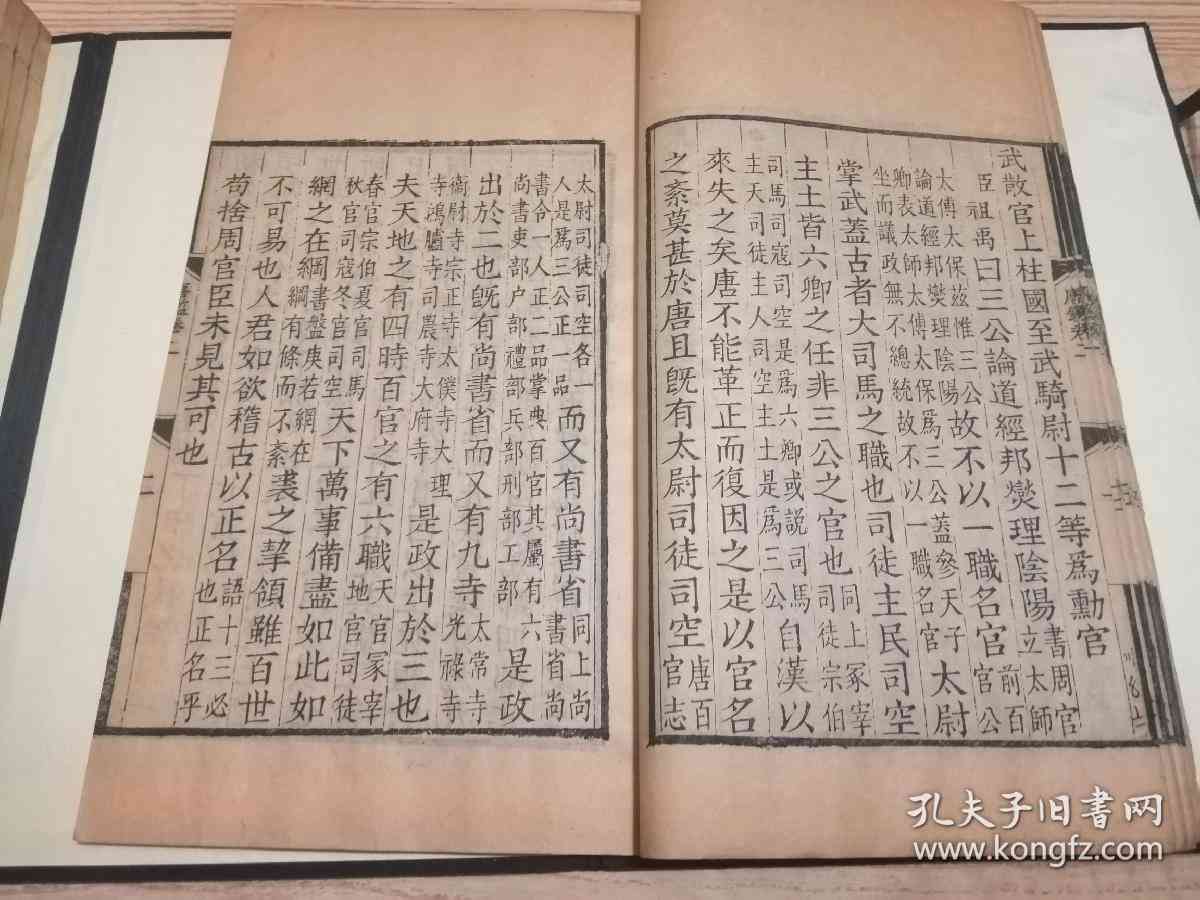 武散官上柱國至武騎尉十二等爲勳官
臣祖禹曰三公論道經邦燮理陰陽書周官立太師
太傅太保茲惟三公論道經邦燮理陰陽故不以一職名官前百官公
卿表太師太傅太保爲三公蓋參天子坐而議政無不總統故不以一職名官太尉
掌武蓋古者大司馬之職也司徒主民司空
主土皆六卿之任非三公之官也同上冢宰司徒宗伯
司馬司寇司空是爲六卿或説司馬主天司徒主人司空主土是爲三公自漢以
來失之矣唐不能革正而復因之是以官名
之紊莫甚於唐且既有太尉司徒司空唐百官志
太尉司徒司空各一人是爲三公正一品而又有尚書省同上尚書省尚
書令一人正二品掌典百官其屬有六尚書吏部户部禮部兵部刑部工部是政
出於二也既有尚書省而又有九寺太常寺光祿寺
衛尉寺宗正寺太僕寺大理寺鴻臚寺司農寺大府寺是政出於三也
夫天地之有四時百官之有六職天官冢宰地官司徒
春官宗伯夏官司馬秋官司寇冬官司空天下萬事備盡如此如
網之在綱書盤庚若網在綱有條而不紊裘之挈領雖百世
不可易也人君如欲稽古以正名語十三必也正名乎
苟捨周官臣未見其可也
孔夫子旧书网
www.kongfz.com